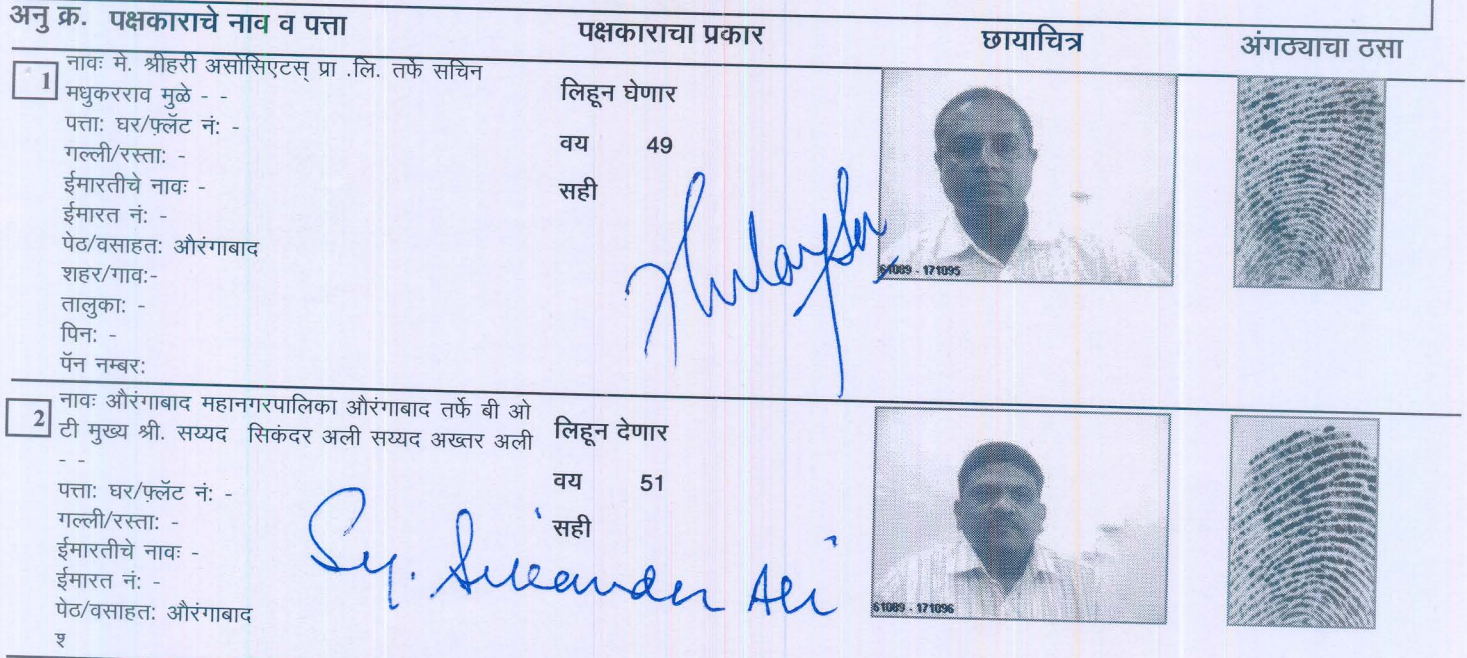 अनु क्र. पक्षकाराचे नाव व पत्ता पक्षकाराचा प्रकार छायाचित्र अंगठ्याचा ठसा
1 नावः मे. श्रीहरी असोसिएटस् प्रा .लि. तर्फे सचिन
मधुकरराव मुळे - -
पत्ता: घर/फ़्लॅट नं: -
गल्ली/रस्ता: -
ईमारतीचे नावः -
ईमारत नं: -
पेठ/वसाहत: औरंगाबाद
शहर/गाव:-
तालुका: -
पिन: -
पॅन नम्बर:
लिहून घेणार
वय 49
सही
61089 - 171095
2 नावः औरंगाबाद महानगरपालिका औरंगाबाद तर्फे बी ओ
टी मुख्य श्री. सय्यद सिकंदर अली सय्यद अख्तर अली
- -
पत्ता: घर/फ़्लॅट नं: -
गल्ली/रस्ता: -
ईमारतीचे नावः -
ईमारत नं: -
पेठ/वसाहत: औरंगाबाद
श
लिहून देणार
वय 51
सही
Sy. Sikander Ali
61089 - 171096